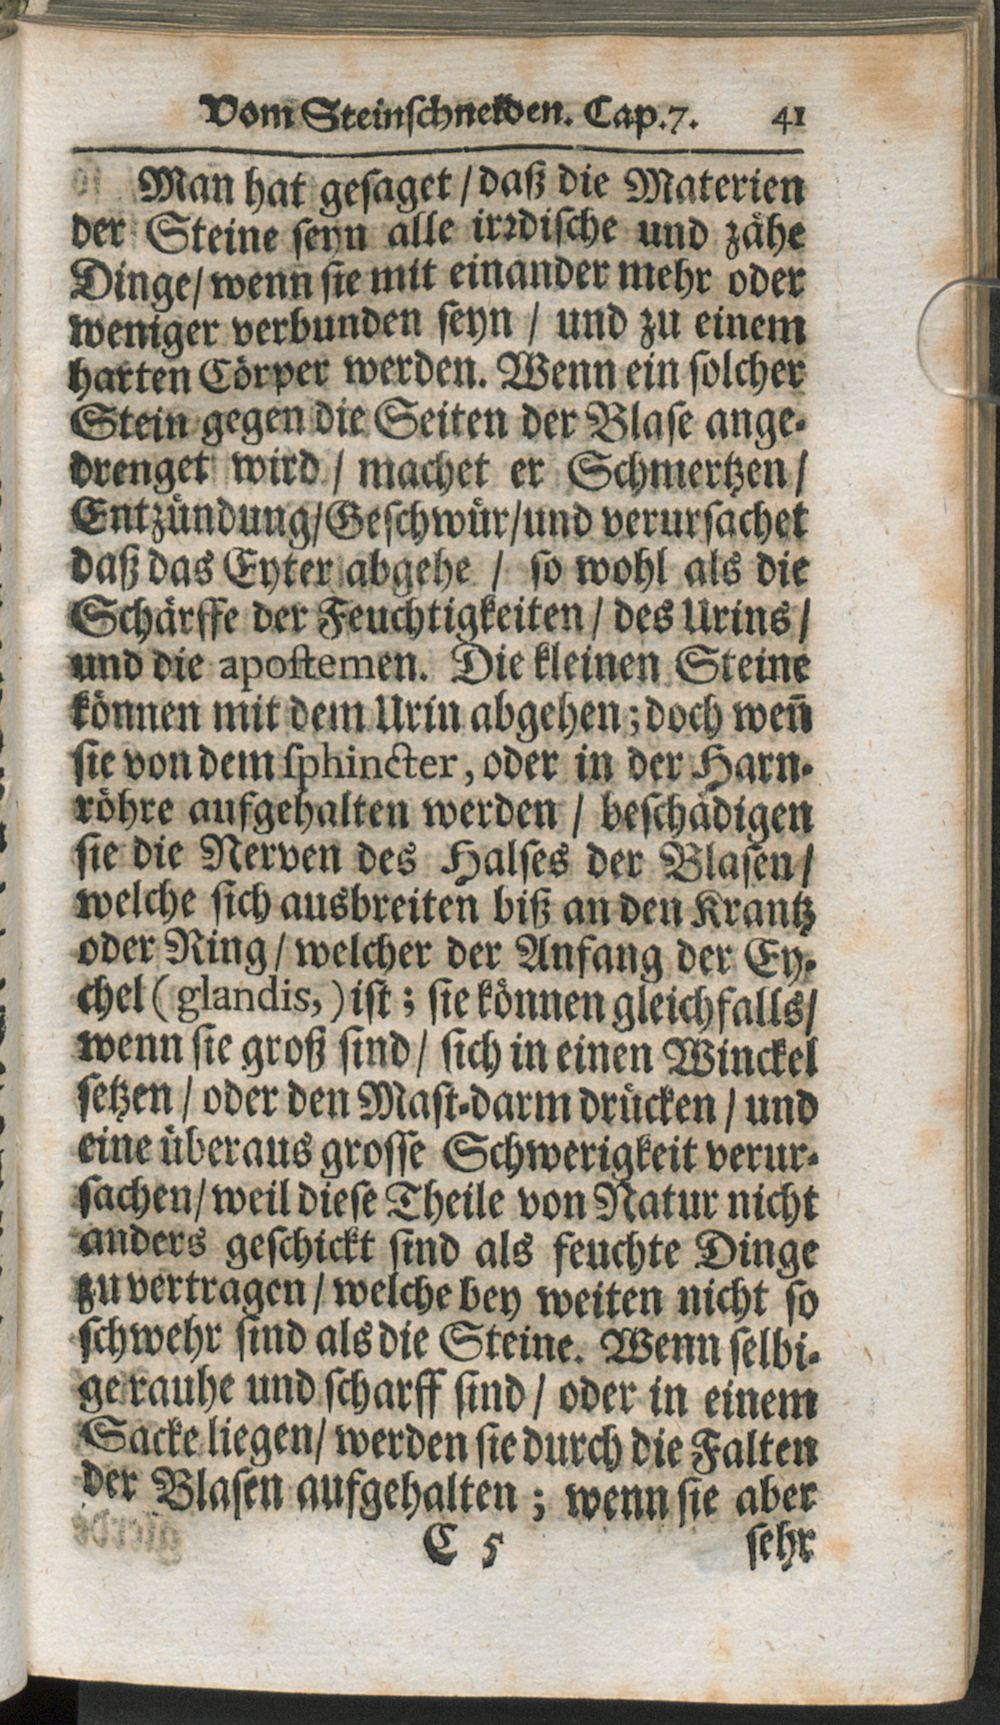 Vom Steinschneiden. Cap.7. 41
Man hat gesaget / daß die Materien
der Steine seyn alle irrdische und zähe
Dinge / wenn sie mit einander mehr oder
weniger verbunden seyn / und zu einem
harten Cörper werden. Wenn ein solcher
Stein gegen die Seiten der Blase ange-
drenget wird / machet er Schmertzen /
Entzündung / Geschwür / und verursachet
daß das Eyter abgehe / so wohl als die
Schärffe der Feuchtigkeiten / des Urins /
und die apostemen. Die kleinen Steine
können mit dem Urin abgehen; doch weñ
sie von dem sphincter, oder in der Harn-
röhre aufgehalten werden / beschädigen
sie die Nerven des Halses der Blasen /
welche sich ausbreiten biß an den Krantz
oder Ring / welcher der Anfang der Ey-
chel ( glandis, ) ist; sie können gleichfalls /
wenn sie groß sind / sich in einen Winckel
setzen / oder den Mast-darm drücken / und
eine überaus grosse Schwerigkeit verur-
sachen / weil diese Theile von Natur nicht
anders geschickt sind als feuchte Dinge
zu vertragen / welche bey weiten nicht so
schwehr sind als die Steine. Wenn selbi-
ge rauhe und scharff sind / oder in einem
Sacke liegen / werden sie durch die Falten
der Blasen aufgehalten; wenn sie aber
C 5 sehr